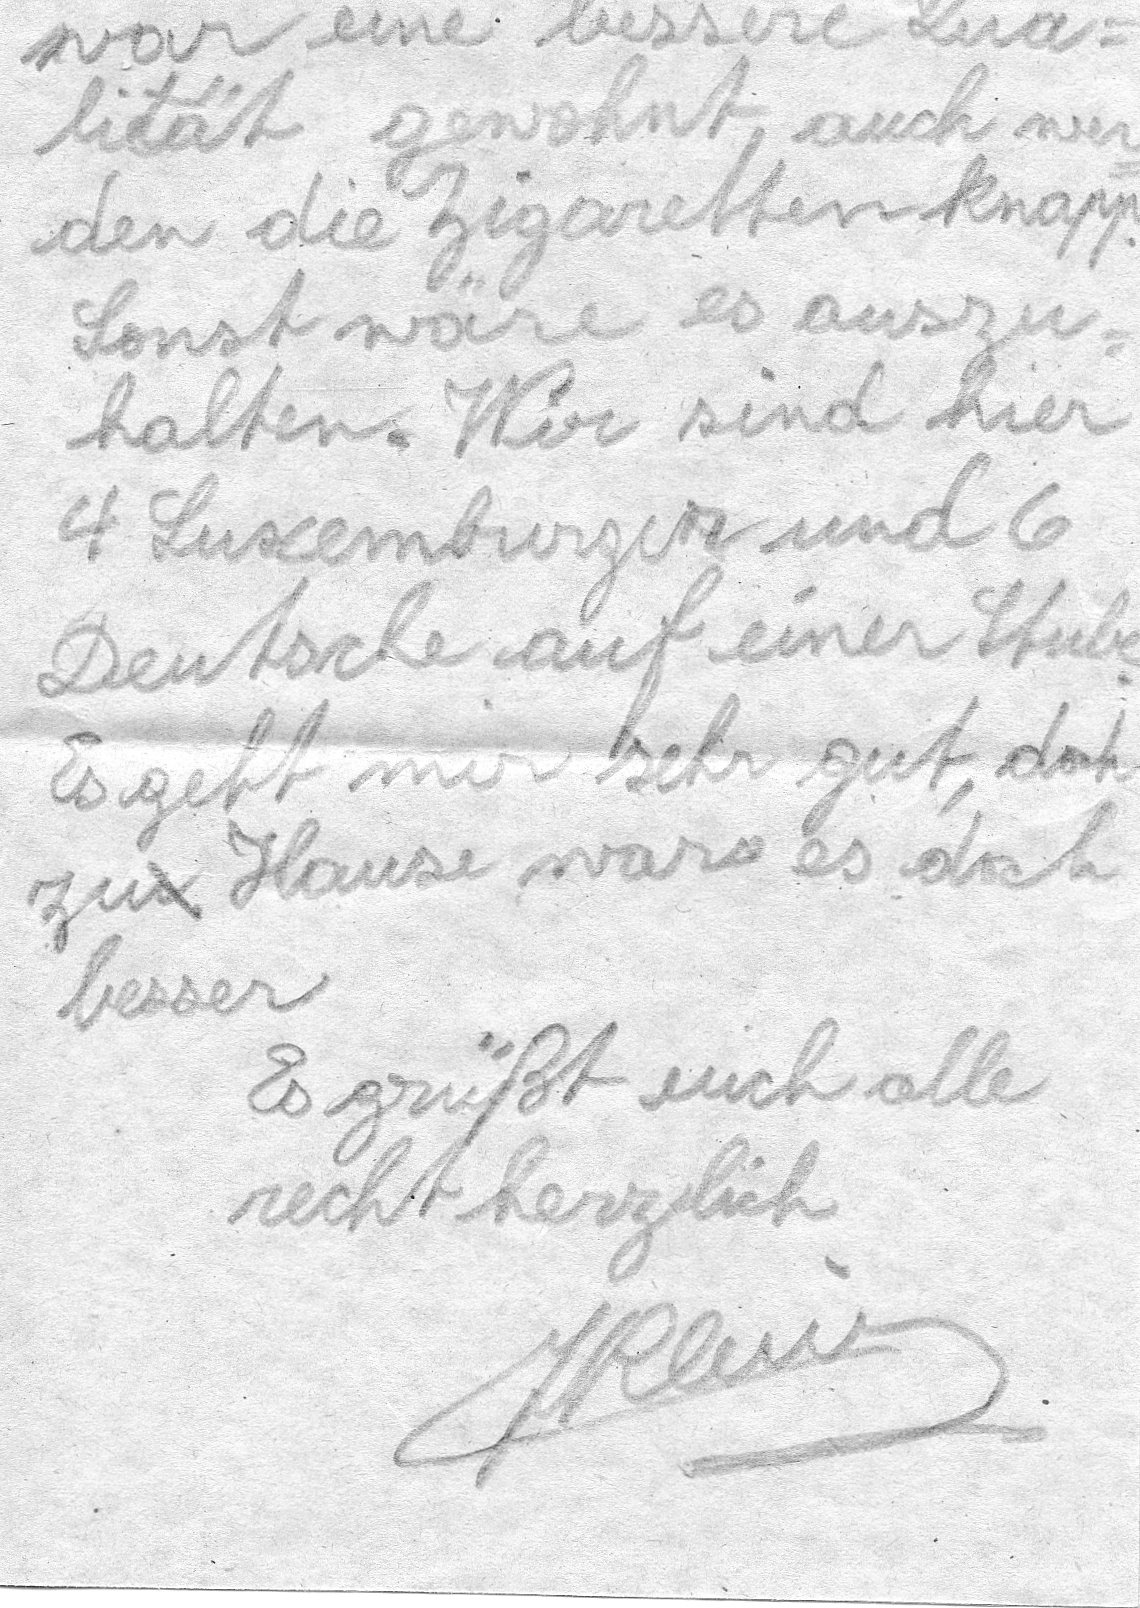 war eine bessere Qua=
lität gewohnt, auch wer=
den die Zigaretten knapp.
Sonst wäre es auszu=
halten. Wir sind hier
4 Luxemburger und 6
Deutsche auf einer Stube.
Es geht mir sehr gut, doch
zu Hause wars es doch
besser
Es grüßt euch alle
recht herzlich